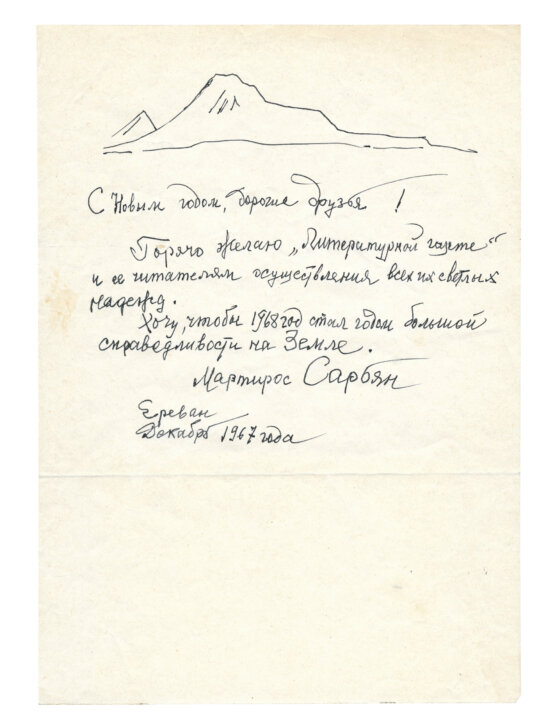 С Новым годом, дорогие друзья !
Горячо желаю „Литературной газете“
и ее читателям осуществления всех их светлых
надежд.
Хочу, чтобы 1968 год стал годом большой
справедливости на Земле.
Мартирос Сарьян
Ереван
Декабрь 1967 года